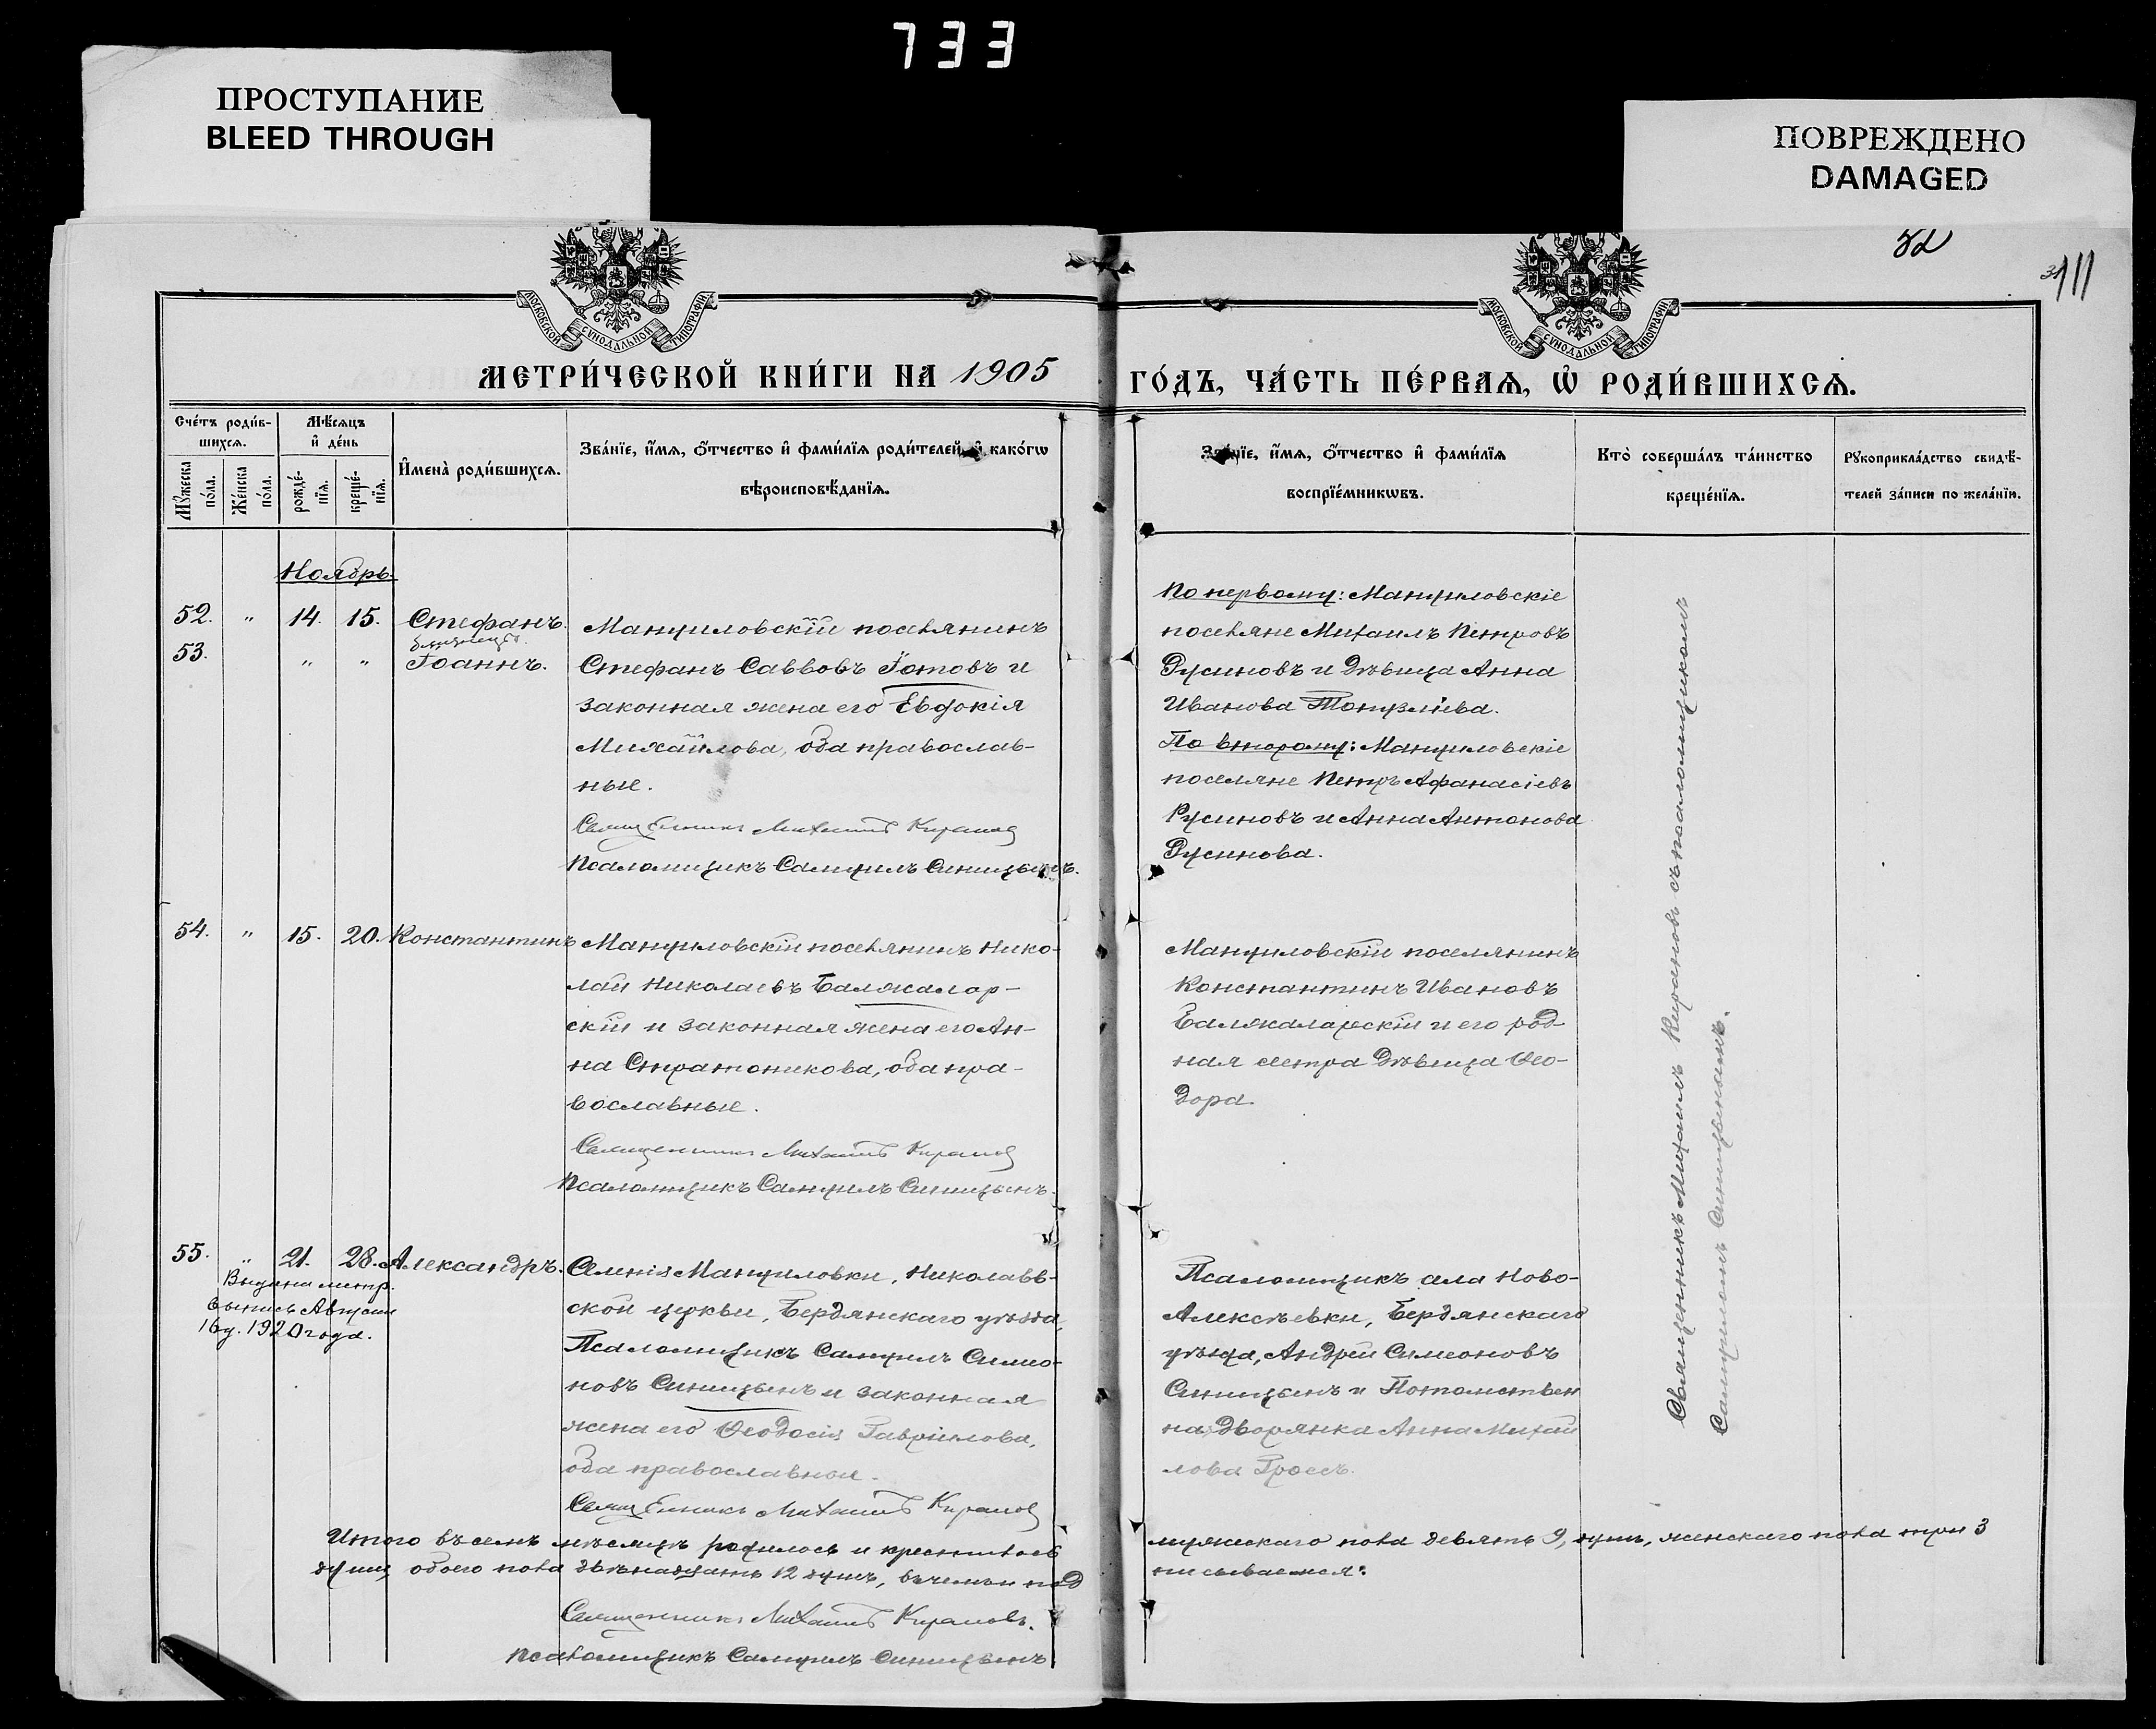 733
ПРОСТУПАНИЕ
BLEED THROUGH
ПОВРЕЖДЕНО
DAMAGED
52
111
МОСКОВСКОЙ СѴНОДАЛЬНОЙ ТИПОГРАФІИ
МОСКОВСКОЙ СѴНОДАЛЬНОЙ ТИПОГРАФІИ
МЕТРИ́ЧЕСКОЙ КНИ́ГИ НА 1905
ГО́ДЪ, ЧА́СТЬ ПЕ́РВАѦ, Ѽ РОДИ́ВШИХСѦ.
Сче́тъ роди́в-
шихсѧ.
Мꙋ́жеска по́ла.
Же́нска по́ла.
Мѣ́сѧцъ
и҆ де́нь
рожде́-нїѧ.
креще́-нїѧ.
И҆мена̀ роди́вшихсѧ.
Зва́нїе, и҆́мѧ, ѻ҆́тчество и҆ фами́лїѧ роди́телей, и҆ како́гѡ
вѣроисповѣ́данїѧ.
Зва́нїе, и҆́мѧ, ѻ҆́тчество и҆ фами́лїѧ
воспрїе́мникѡвъ.
Кто̀ соверша́лъ та́инство
креще́нїѧ.
Рꙋкоприкла́дство свидѣ́-
телей за́писи по жела́нїю.
Ноябрь
52. " 14. 15. Стефанъ.
близнецы.
53. " " Іоаннъ.
Мануиловскій поселянинъ
Стефанъ Саввовъ Іотовъ и
законная жена его Евдокія
Михайлова, оба православ-
ные.
Священникъ Михаилъ Кирановъ
Псаломщикъ Самуилъ Синицынъ.
По первому: Мануиловскіе
поселяне Михаилъ Петровъ
Русиновъ и Дѣвица Анна
Иванова Топузліева.
По второму: Мануиловскіе
поселяне Петръ Афанасіевъ
Русиновъ и Анна Антонова
Русинова.
54. " 15. 20. Константинъ
Мануиловскій поселянинъ Нико-
лай Николаевъ Балжалар-
скій и законная жена его Ан-
на Стратоникова, оба пра-
вославные.
Священникъ Михаилъ Кирановъ
Псаломщикъ Самуилъ Синицынъ.
Мануиловскій поселянинъ
Константинъ Ивановъ
Балжаларскій и его род-
ная сестра Дѣвица Ѳео-
дора.
55. " 21. 28. Александръ.
Выдана метр.
выпись Августа
16 д. 1920 года.
Селенія Мануиловки, Николаев-
ской церкви, Бердянскаго уѣзда,
Псаломщикъ Самуилъ Симео-
новъ Синицынъ и законная
жена его Ѳеодосія Гавріилова,
оба православные.
Священникъ Михаилъ Кирановъ
Псаломщикъ села Ново-
Алексѣевки, Бердянскаго
уѣзда, Андрей Симеоновъ
Синицынъ и Потомствен
ная Дворянка Анна Михай
лова Гроссъ.
Священникъ Михаилъ Кирановъ съ псаломщикомъ
Самуиломъ Синицынымъ.
Итого въ семъ мѣсяцѣ родилось и крестилось мужескаго пола девять 9, душъ, женскаго пола три 3
души, обоего пола двѣнадцать 12 душъ, въ чемъ и под писываемся:
Священникъ Михаилъ Кирановъ.
Псаломщикъ Самуилъ Синицынъ